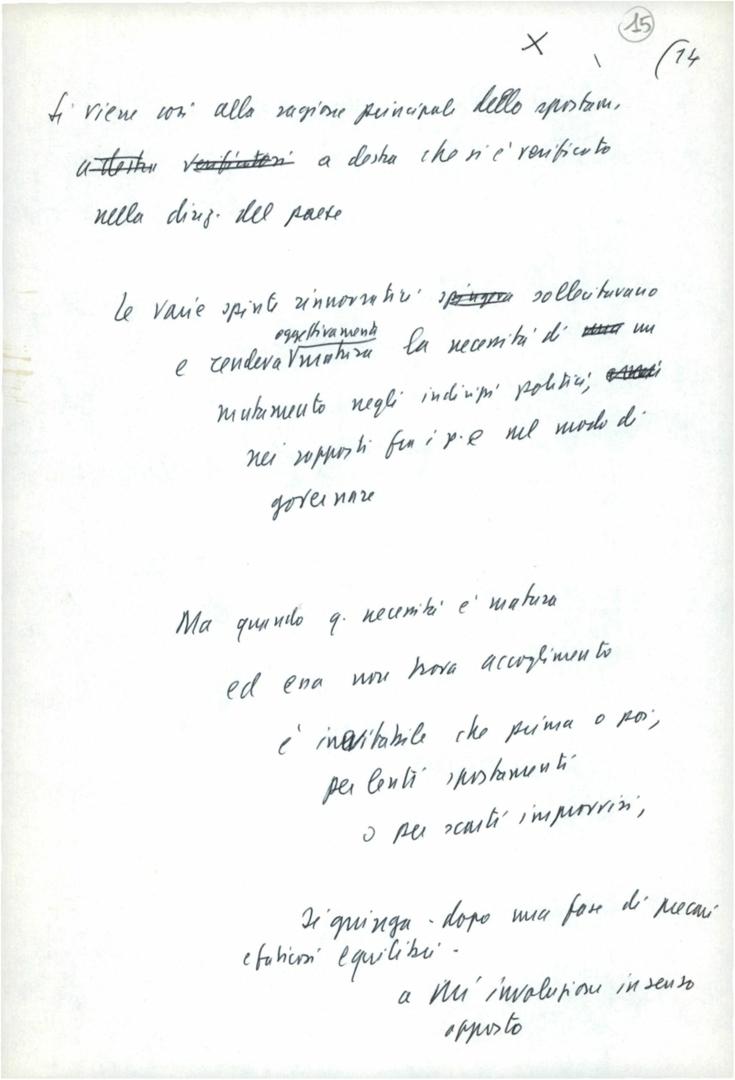 X 15 (14
Si viene così alla ragione principale dello spostam.
a destra verificatosi a destra che si è verificato
nella direz. del paese
Le varie spinte rinnovatrici spingeva sollecitavano
oggettivamente
e rendeva matura la necessità di una un
mutamento negli indirizzi politici,
nei rapporti fra i p. e nel modo di
governare
Ma quando q. necessità è matura
ed essa non trova accoglimento
è inevitabile che prima o poi,
per lenti spostamenti
o per scarti improvvisi,
si giunga - dopo una fase di precari
e faticosi equilibri -
a un' involuzione in senso
opposto